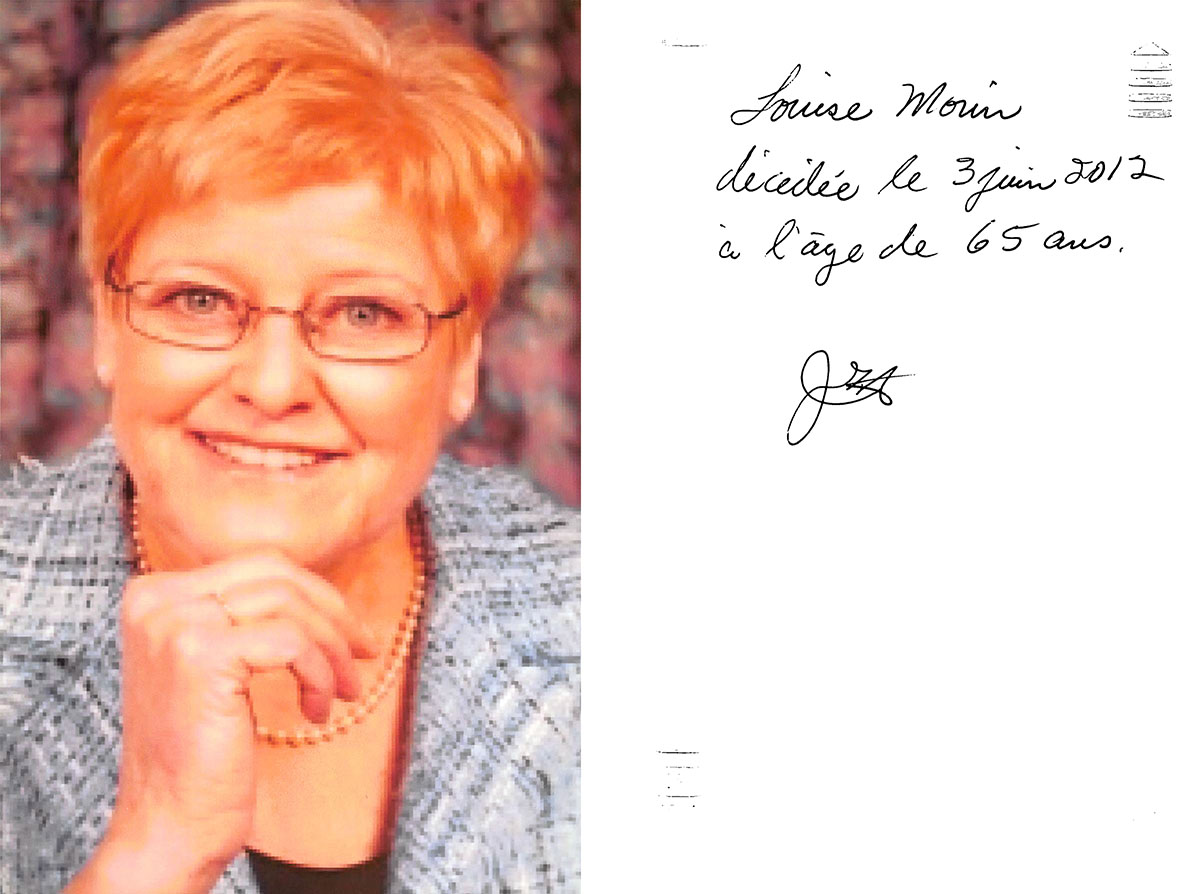 Louise Morin
décédée le 3 juin 2012
à l'âge de 65 ans.